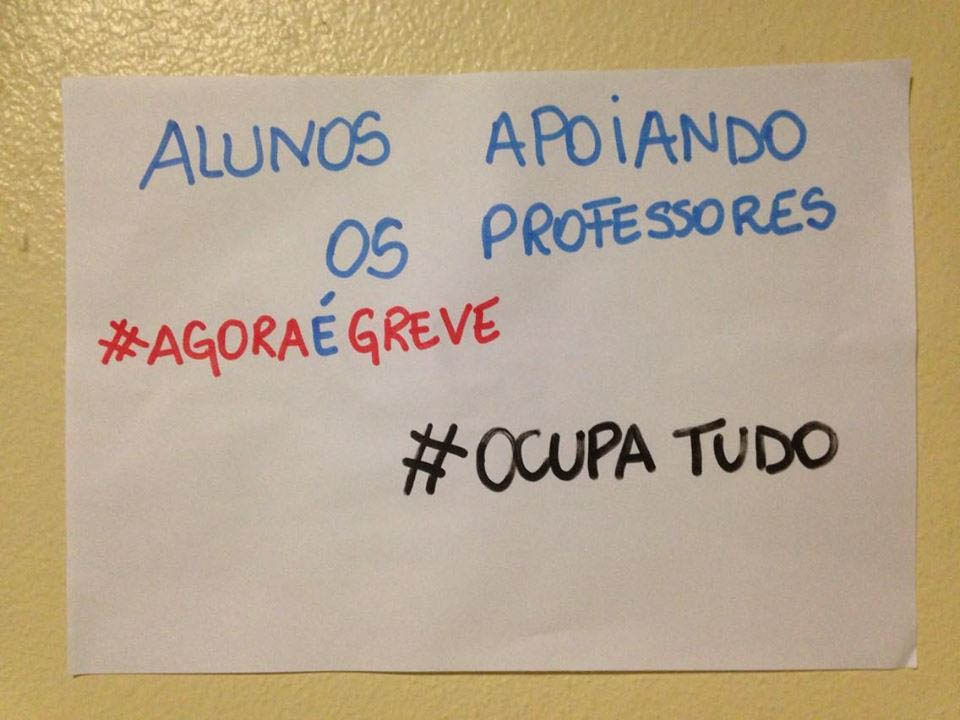 ALUNOS APOiANDO
OS PROFESSORES
#AGORAÉGREVE
#OCUPA TUDO